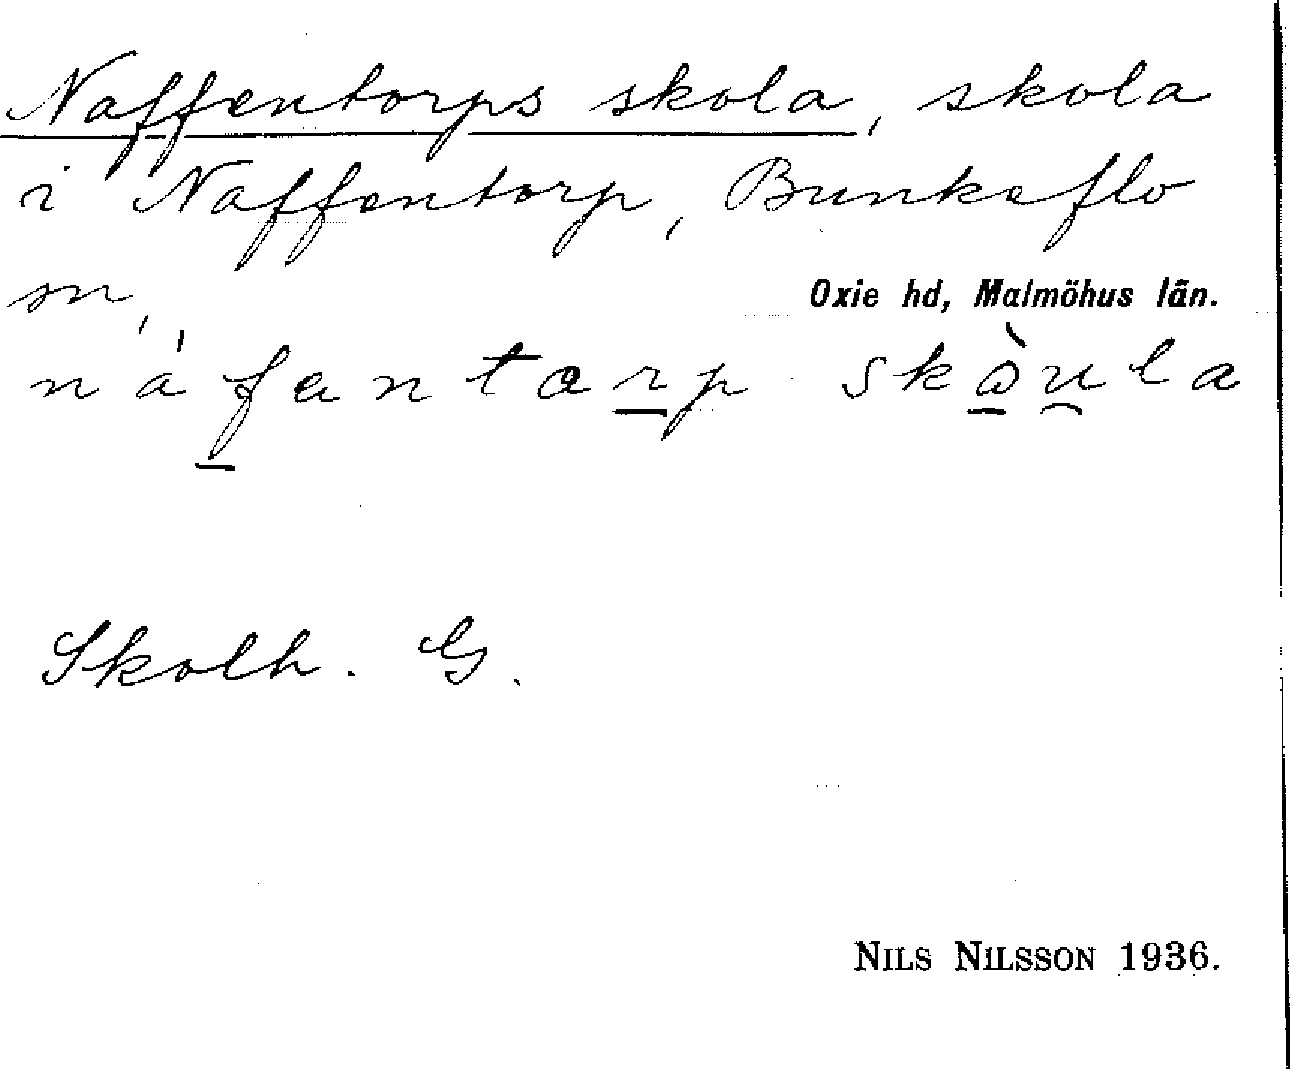 Naffentorps skola, skola
i Naffentorp, Bunkeflo
sn,
Oxie hd, Malmöhus län.
náf̲antar̲p skò̲u̯la
Skolh. G.
NILS NILSSON 1936.